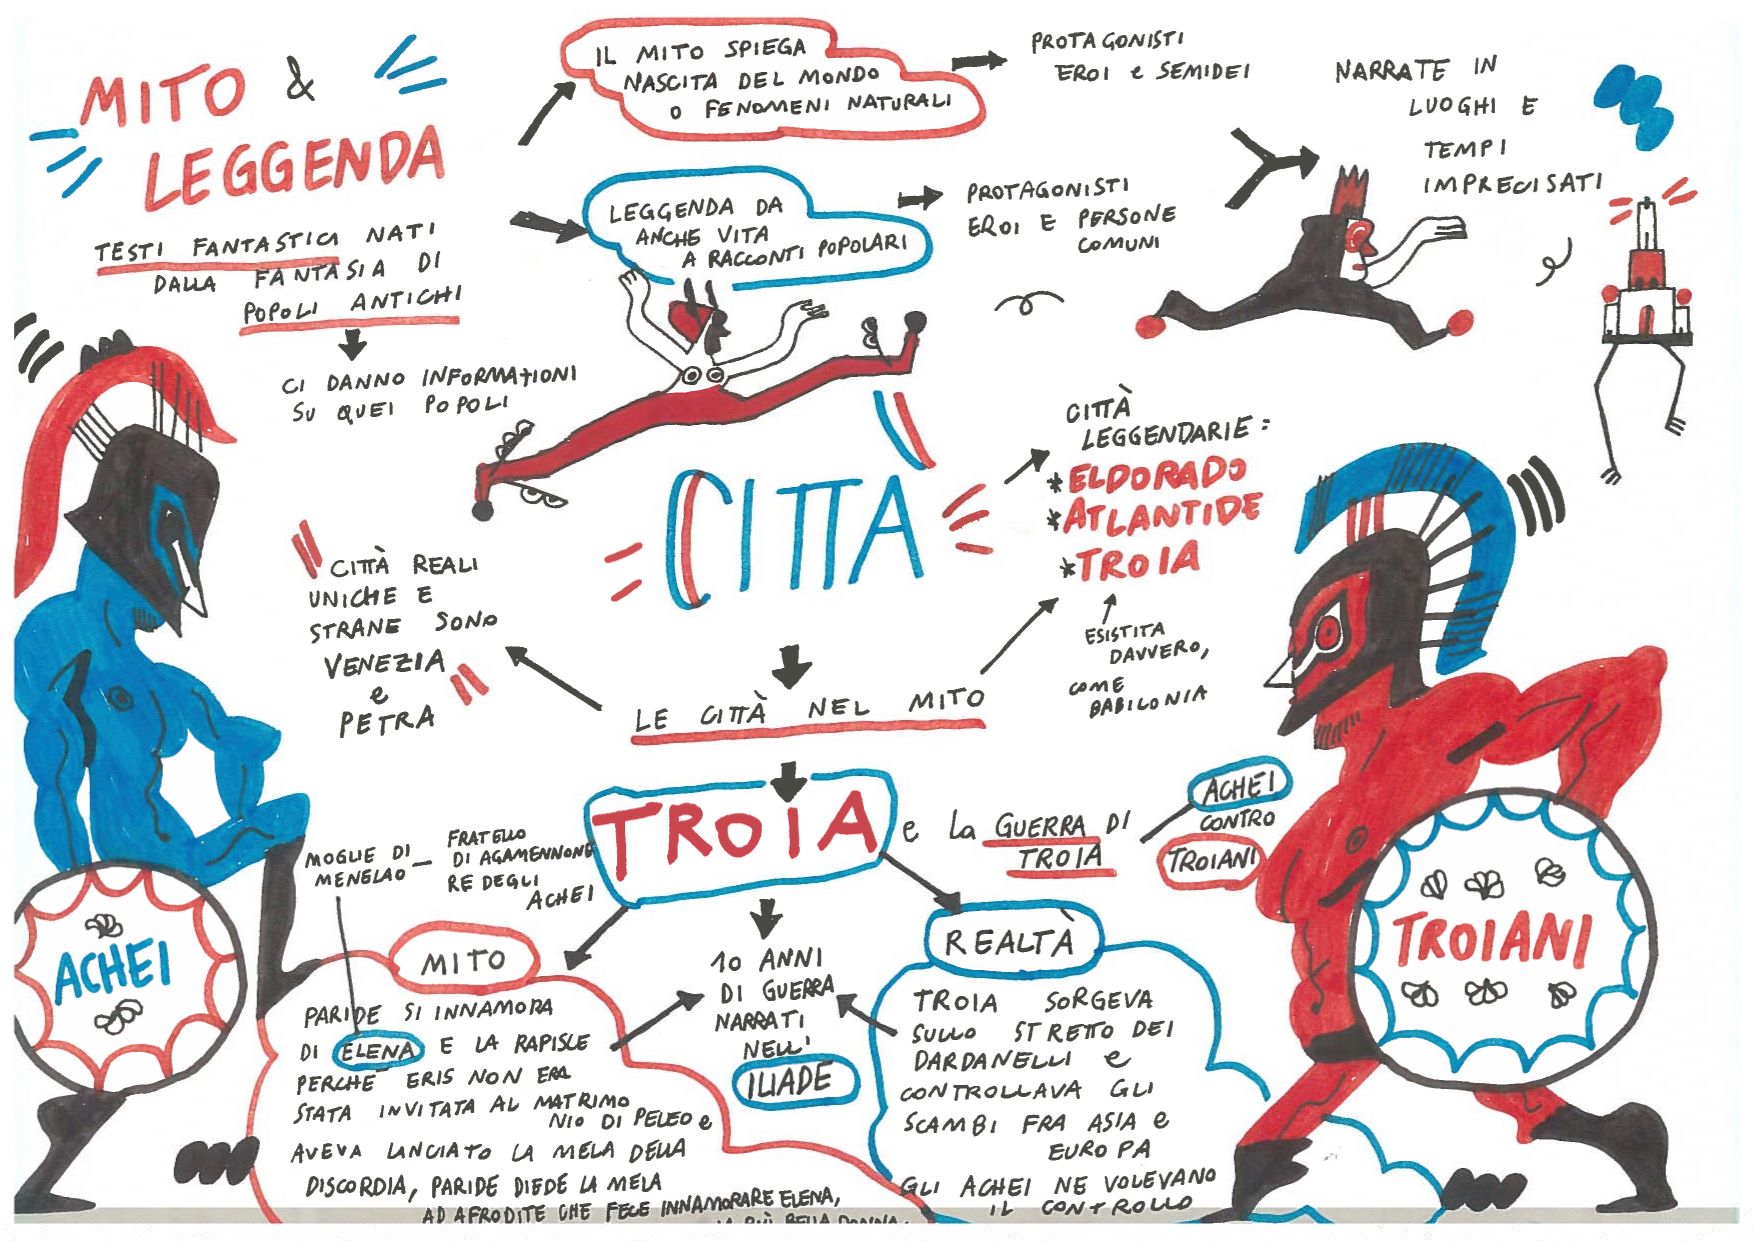 MITO &
LEGGENDA
TESTI FANTASTICI NATI
DALLA FANTASIA DI
POPOLI ANTICHI
CI DANNO INFORMATIONI
SU QUEI POPOLI
IL MITO SPIEGA
NASCITA DEL MONDO
O FENOMENI NATURALI
PROTAGONISTI
EROI e SEMIDEI
LEGGENDA DA
ANCHE VITA
A RACCONTI POPOLARI
PROTAGONISTI
EROI E PERSONE
COMUNI
NARRATE IN
LUOGHI E
TEMPI
IMPRECISATI
CITTÀ
CITTÀ
LEGGENDARIE:
*ELDORADO
*ATLANTIDE
*TROIA
ESISTITA
DAVVERO,
COME
BABILONIA
CITTÀ REALI
UNICHE E
STRANE SONO
VENEZIA
e
PETRA
LE CITTÀ NEL MITO
TROIA e la GUERRA DI
TROIA
ACHEI
CONTRO
TROIANI
MOGLIE DI
MENELAO
FRATELLO
DI AGAMENNONE
RE DEGLI
ACHEI
MITO
PARIDE SI INNAMORA
DI ELENA E LA RAPISCE
PERCHÉ ERIS NON ERA
STATA INVITATA AL MATRIMO
NIO DI PELEO e
AVEVA LANCIATO LA MELA DELLA
DISCORDIA, PARIDE DIEDE LA MELA
AD AFRODITE CHE FECE INNAMORARE ELENA,
LA PIÙ BELLA DONNA
10 ANNI
DI GUERRA
NARRATI
NELL'
ILIADE
REALTÀ
TROIA SORGEVA
SULLO STRETTO DEI
DARDANELLI e
CONTROLLAVA GLI
SCAMBI FRA ASIA e
EUROPA
GLI ACHEI NE VOLEVANO
IL CONTROLLO
ACHEI
TROIANI